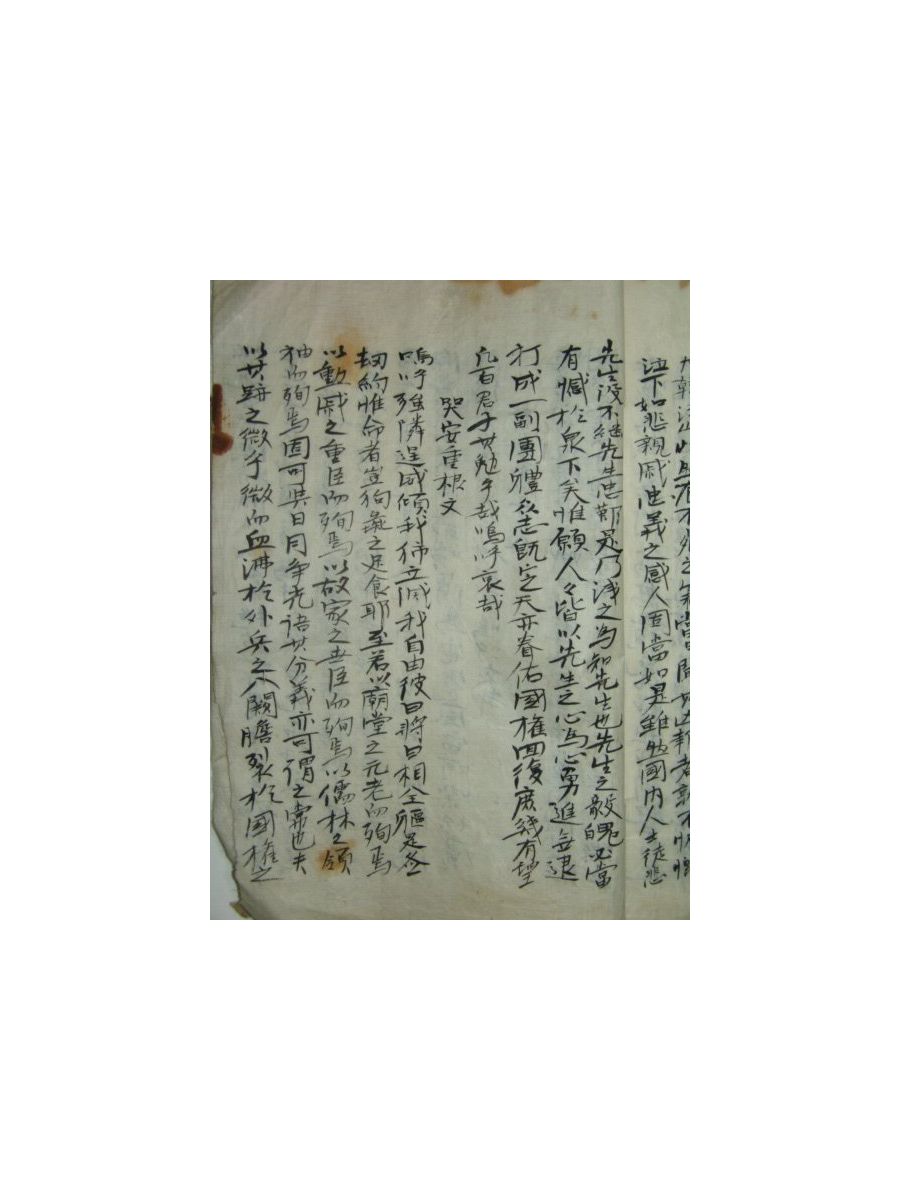 泣下如悲親戚忠義之感人固當如是雖然國内人士徒悲
先生沒不继先生忠節是乃淺之為知先生也先生之毅魄必當
有憾於泉下矣惟願人々皆以先生之心為心勇進無退
打成一副團體衆志既定天亦眷佑國權回復庶幾有望
凡百君子其勉乎哉嗚呼哀哉
哭安重根文
嗚乎強隣逞威傾我 立滅我自由彼曰將曰相全軀是
約惟命者豈狗彘之足食耶至若以廟堂之元老而殉焉
以勳戚之重臣而殉焉以故家之世臣而殉焉以儒林之領
袖而殉焉固可與日月争光語其分義亦可謂之常也夫
以其跡之微乎微而血沸於外兵之入闕膽裂於國權之